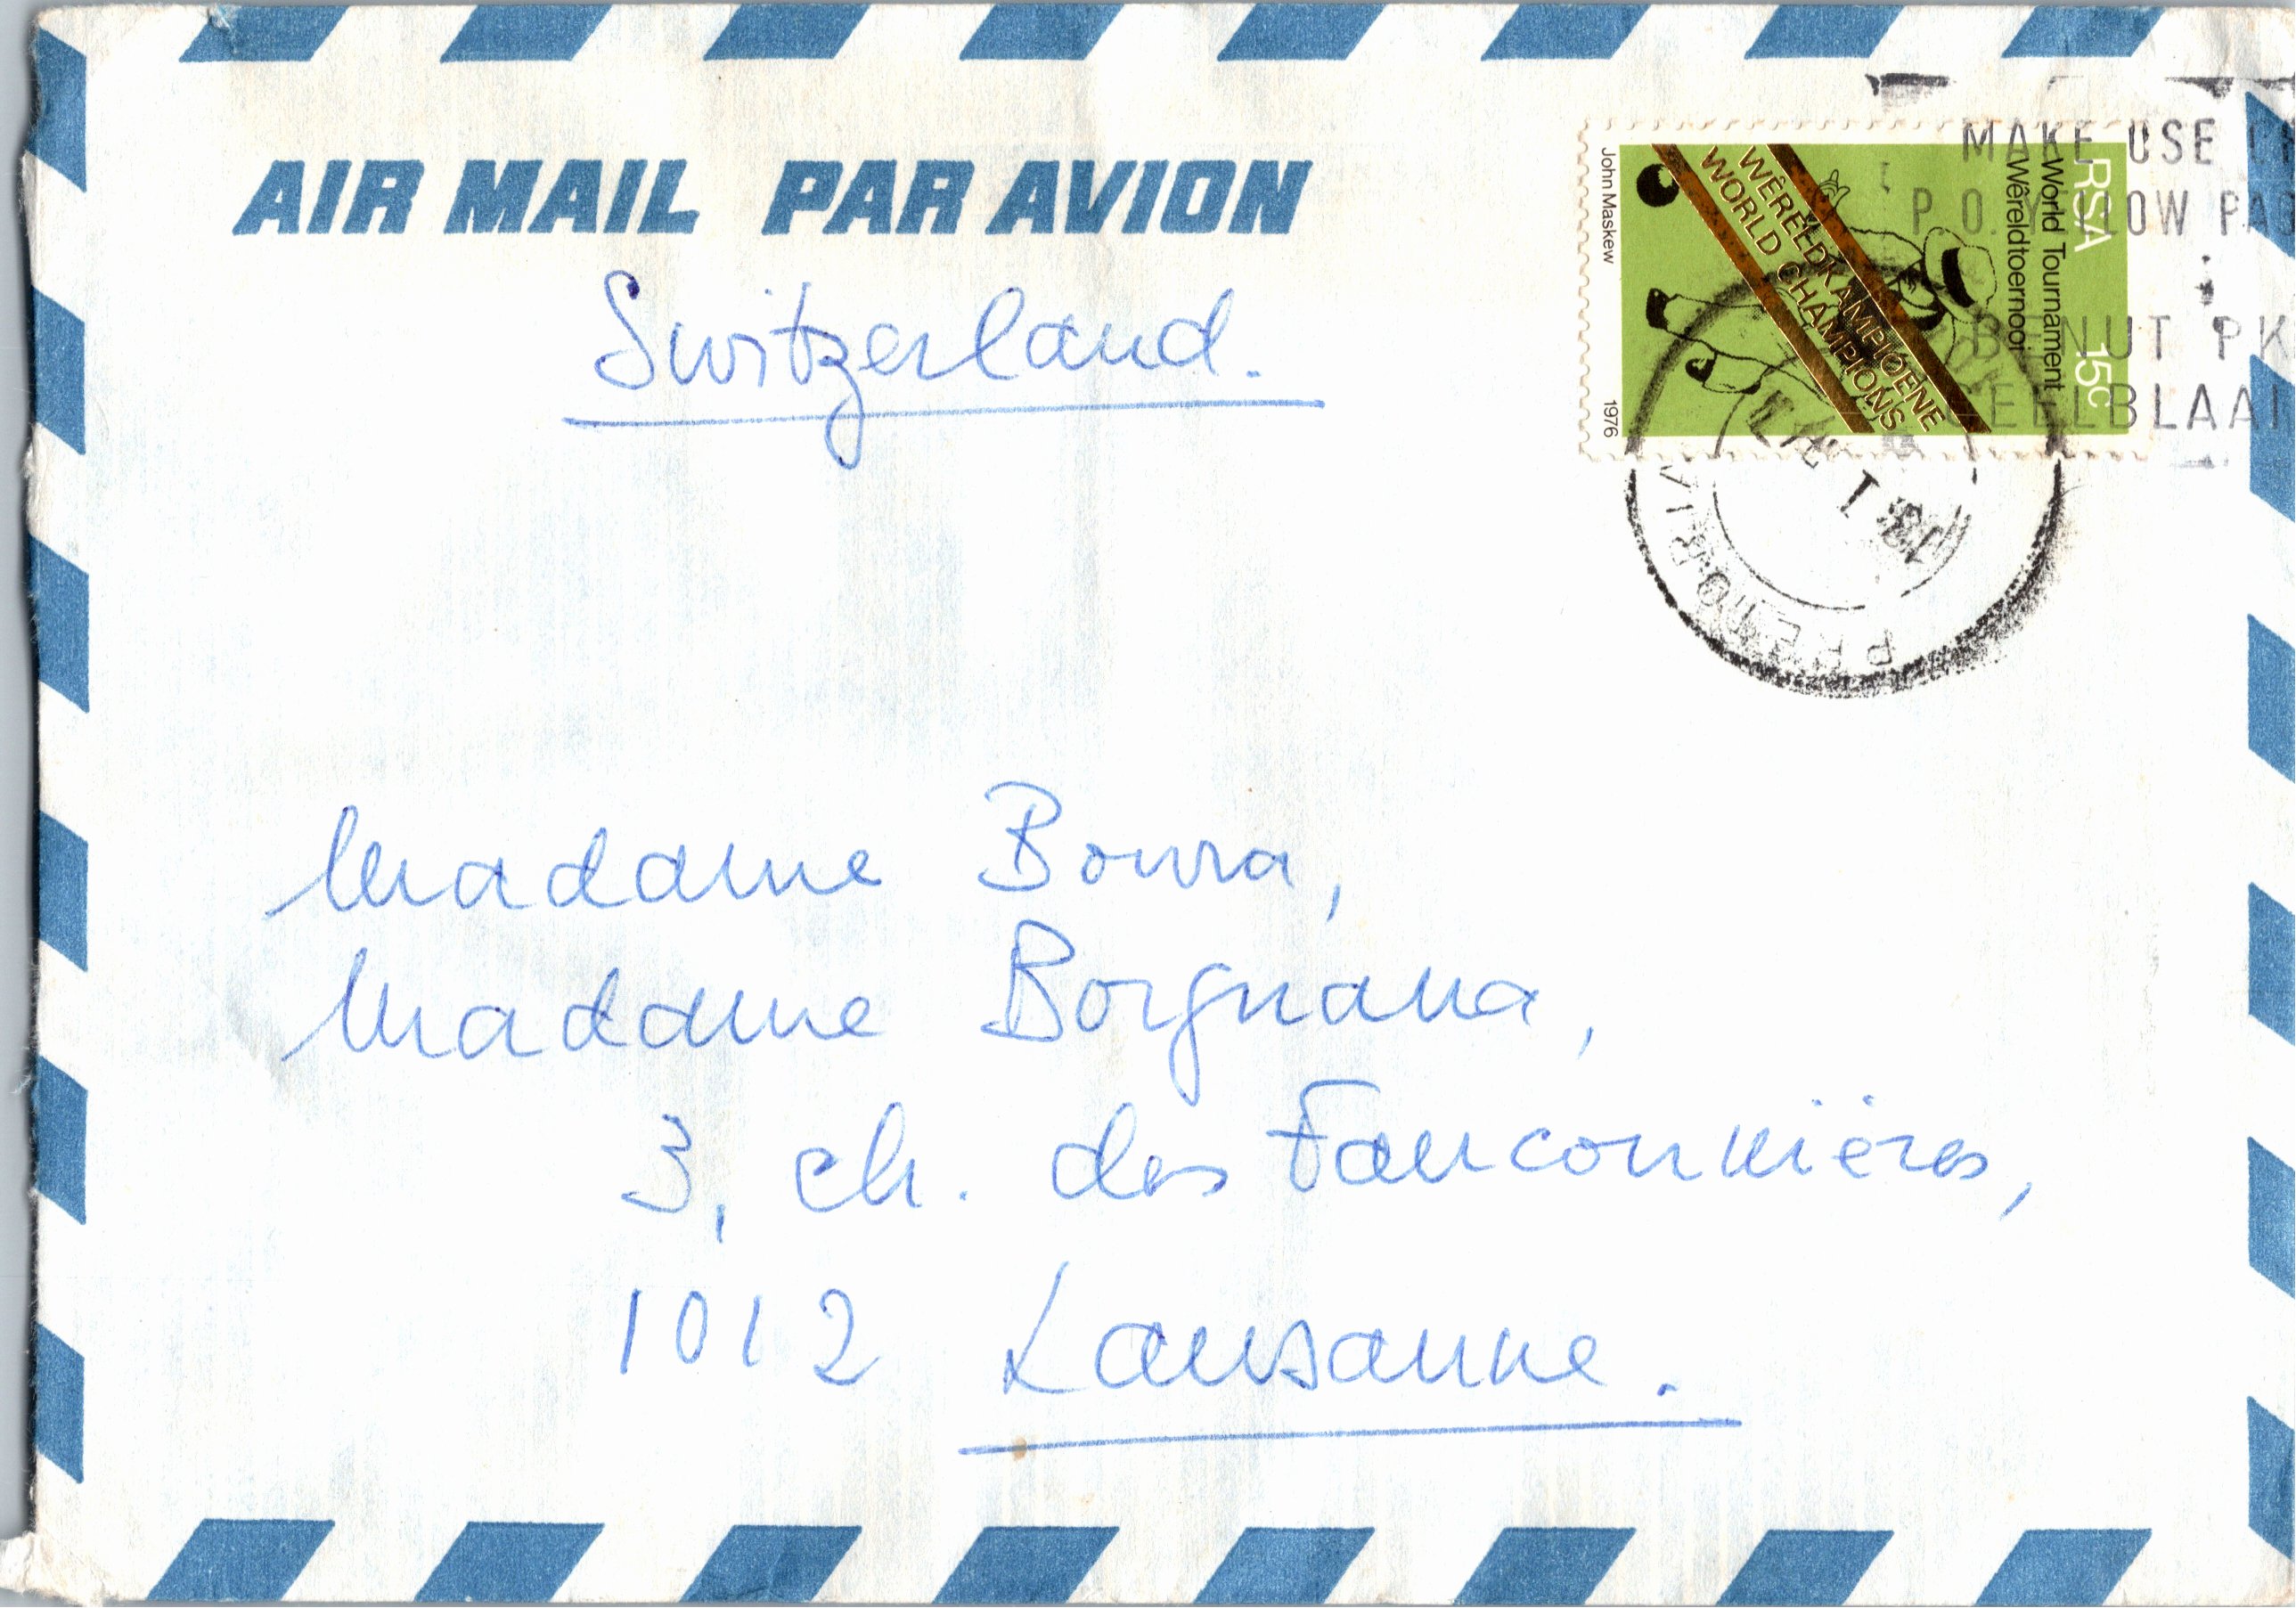 AIR MAIL PAR AVION
Switzerland.
RSA 15c
World Tournament
Wêreldtoernooi
WÊRELDKAMPIOENE
WORLD CHAMPIONS
John Maskew 1976
MAKE USE
P.O. YELLOW
BENUT PK
GEELBLAAI
PRETORIA
Madame Bowra,
Madame Borgnana,
3, ch. des Fauconnières,
1012 Lausanne.